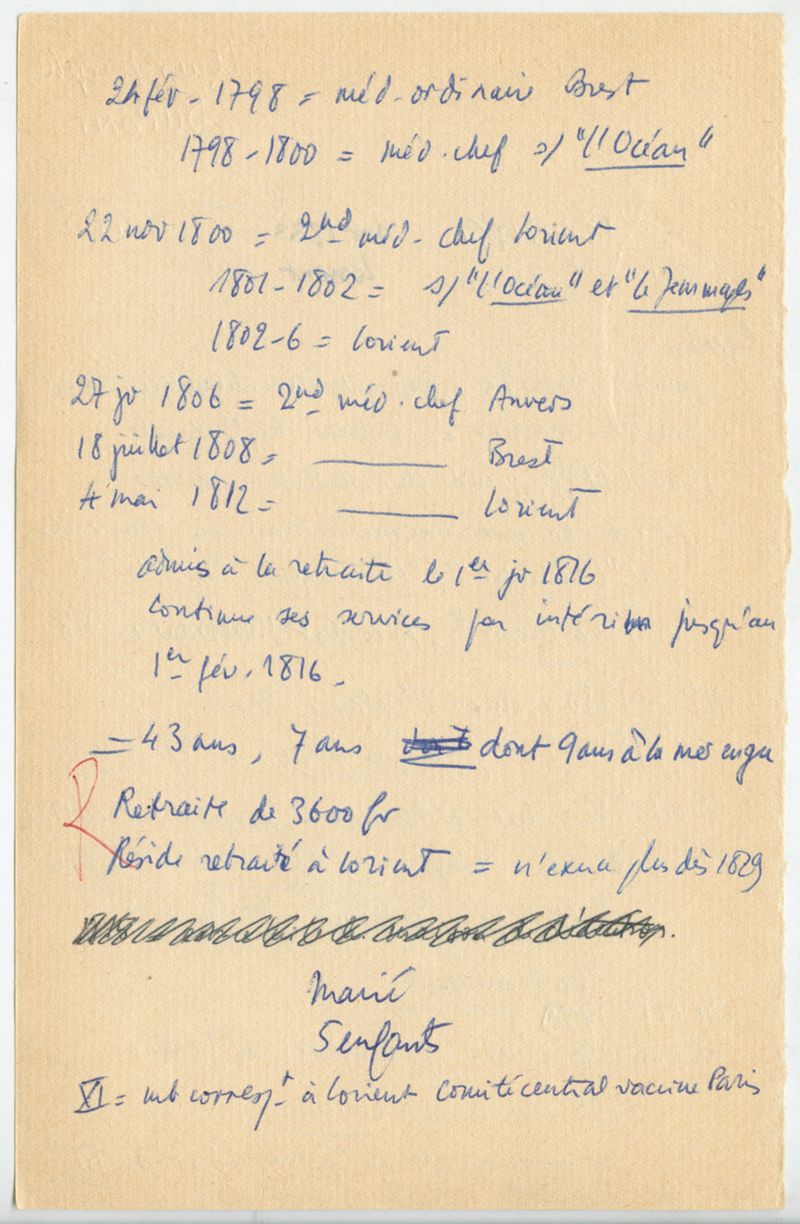 24 fév - 1798 = méd-ordinaire Brest
1798-1800 = méd. chef s/ "l'Océan"
22 nov 1800 = 2nd méd- chef Lorient
1801-1802 = s/ "l'Océan" et "le Jemmapes"
1802-6 = Lorient
27 jr 1806 = 2nd méd. chef Anvers
18 juillet 1808 = ——— Brest
4 mai 1812 = ——— Lorient
admis à la retraite le 1er jr 1816
continue ses services par intérim jusqu'au
1er fév. 1816.
= 43 ans, 7 ans dont 9 ans à la mer en gu
R Retraite de 3600 fr
Réside retraité à Lorient = n'exerce plus dès 1829
Marié
5 enfants
XI = mb correspt à Lorient Comité central vaccine Paris